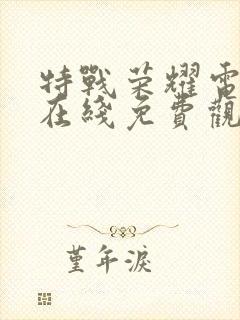 特戰榮耀電
在綫免費觀
堇年淚